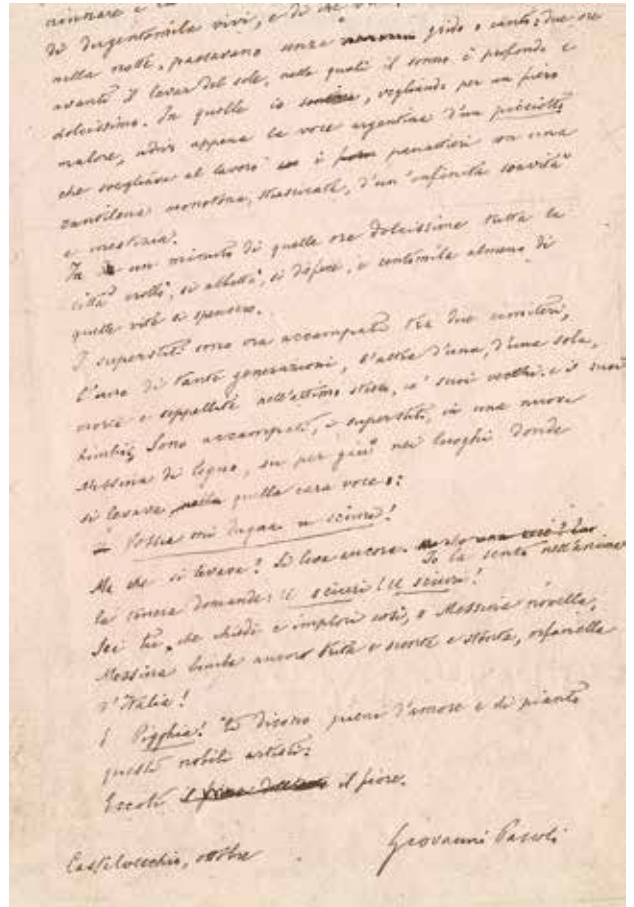 di dugentomila vivi, e di che
nella notte, passavano senza grido o canto due ore
avanti il levar del sole, nelle quali il sonno è profondo e
dolcissimo. In quelle io, vegliando per un fiero
malore, udiva appena la voce argentina d'un picciotto
che svegliava al lavoro i panattieri con una
cantilena monotona, strascicata, d'un'infinita soavità
e mestizia.
In un minuto di quelle ore dolcissime tutta la
città crollò, si abbatté, si disfece, e centomila almeno di
quelle vite si spensero.
I superstiti sono ora accampati tra due cimiteri,
l'uno di tante generazioni, l'altro d'una, d'una sola,
morta e seppellita nell'attimo stesso, co' suoi vecchi e i suoi
bimbi. Sono accampati, i superstiti, in una nuova
Messina di legno, su per giù nei luoghi donde
si levava nella quella cara voce:
Vossia mi dugna u sciuri!
Ma che si levava? Si leva ancora.
Io la sento nell'anima
la tenera domanda: U sciuri! U sciuri!
Sei tu, che chiedi e implori così, o Messina novella,
Messina bimba ancora tutta e smorta e storta, orfanella
d'Italia!
E Pigghia! ti dicono pieni d'amore e di pianto
questi nobili artisti:
Eccoti il fiore.
Castelvecchio, ottobre
Giovanni Pascoli